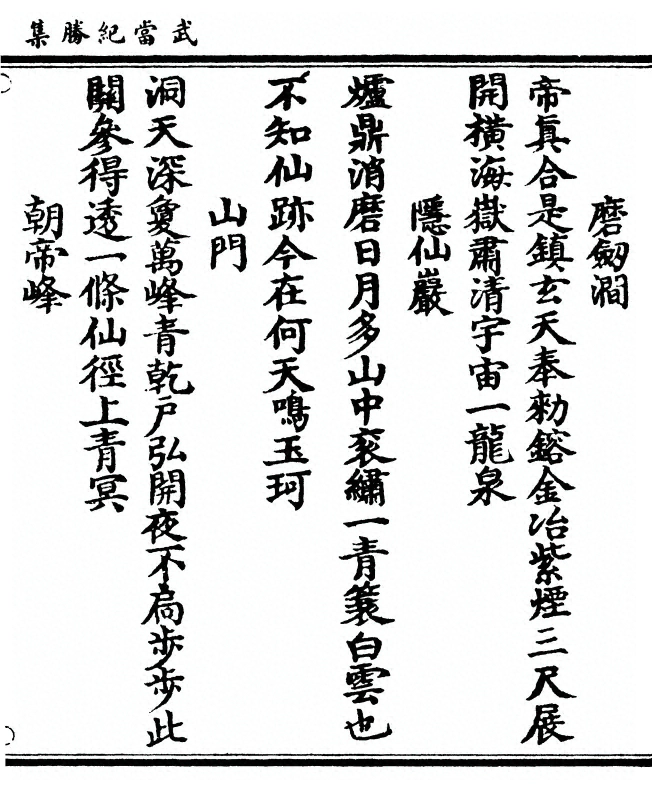 武當紀勝集
磨劒澗
帝真合是鎮玄天奉勑鎔金冶紫煙三尺展
開橫海嶽肅清宇宙一龍泉
隱仙巖
爐鼎消磨日月多山中衮繡一青蓑白雲也
不知仙跡今在何天鳴玉珂
山門
洞天深敻萬峰青乾戶弘開夜不扃步步此
關參得透一條仙徑上青冥
朝帝峰